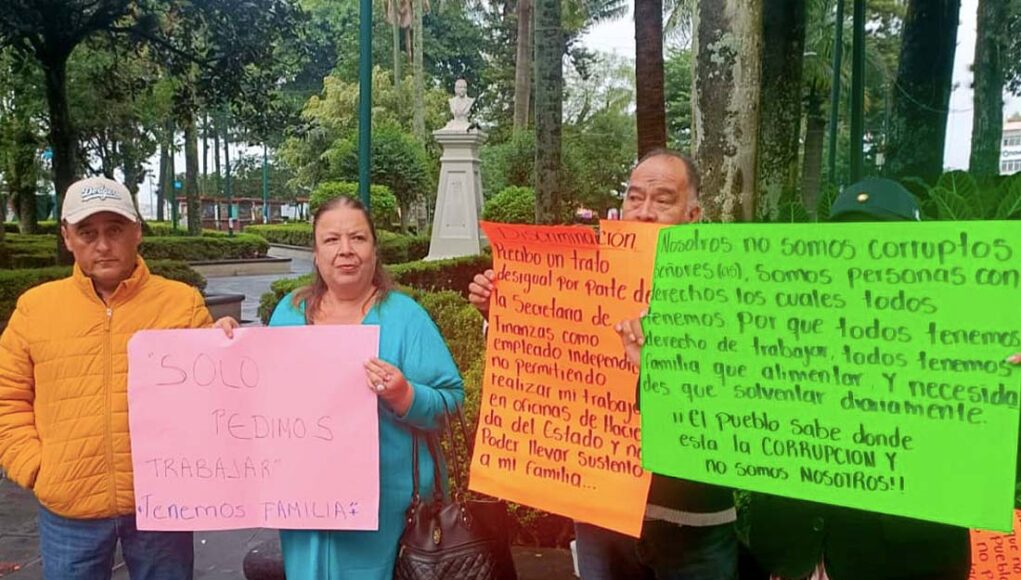 Dodgers
"SOLO
PEDIMOS
TRABAJAR"
Tenemos FAMILIA
Discriminación.
Recibo un trato
desigual por parte de
la Secretaria de
Finanzas como
empleado Independi
no permitiendo
realizar mi trabajo
en oficinas de Hacie
da del Estado y no
Poder llevar sustento
a mi familia...
Nosotros no somos corruptos
señores(as), somos personas con
derechos los cuales todos
tenemos por que todos tenemos
derecho de trabajar, todos tenemos
familia que alimentar y necesida
des que solventar diariamente.
¡¡El pueblo sabe donde
esta la CORRUPCION Y
no somos NOSOTROS!!